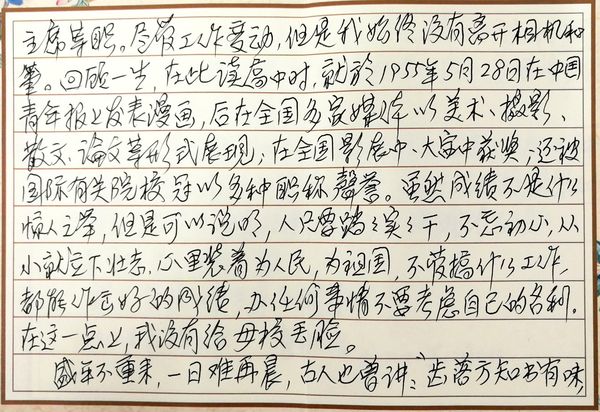 主席等职。尽管工作变动，但是我始终没有离开相机和
笔。回顾一生，在此读高中时，就於1955年5月28日在中国
青年报上发表漫画，后在全国多家媒体以美术、摄影、
散文、论文等形式展现，在全国影展中、大赛中获奖，还被
国际有关院校冠以多种职称声誉。虽然成绩不是什么
惊人之举，但是可以说明，人只要踏踏实实干，不忘初心，从
小就立下壮志，心里装着为人民，为祖国，不管搞什么工作，
都能作出好的成绩，办任何事情不要考虑自己的名利。
在这一点上，我没有给母校丢脸。
盛年不重来，一日难再晨，古人也曾讲：“齿落方知书有味，